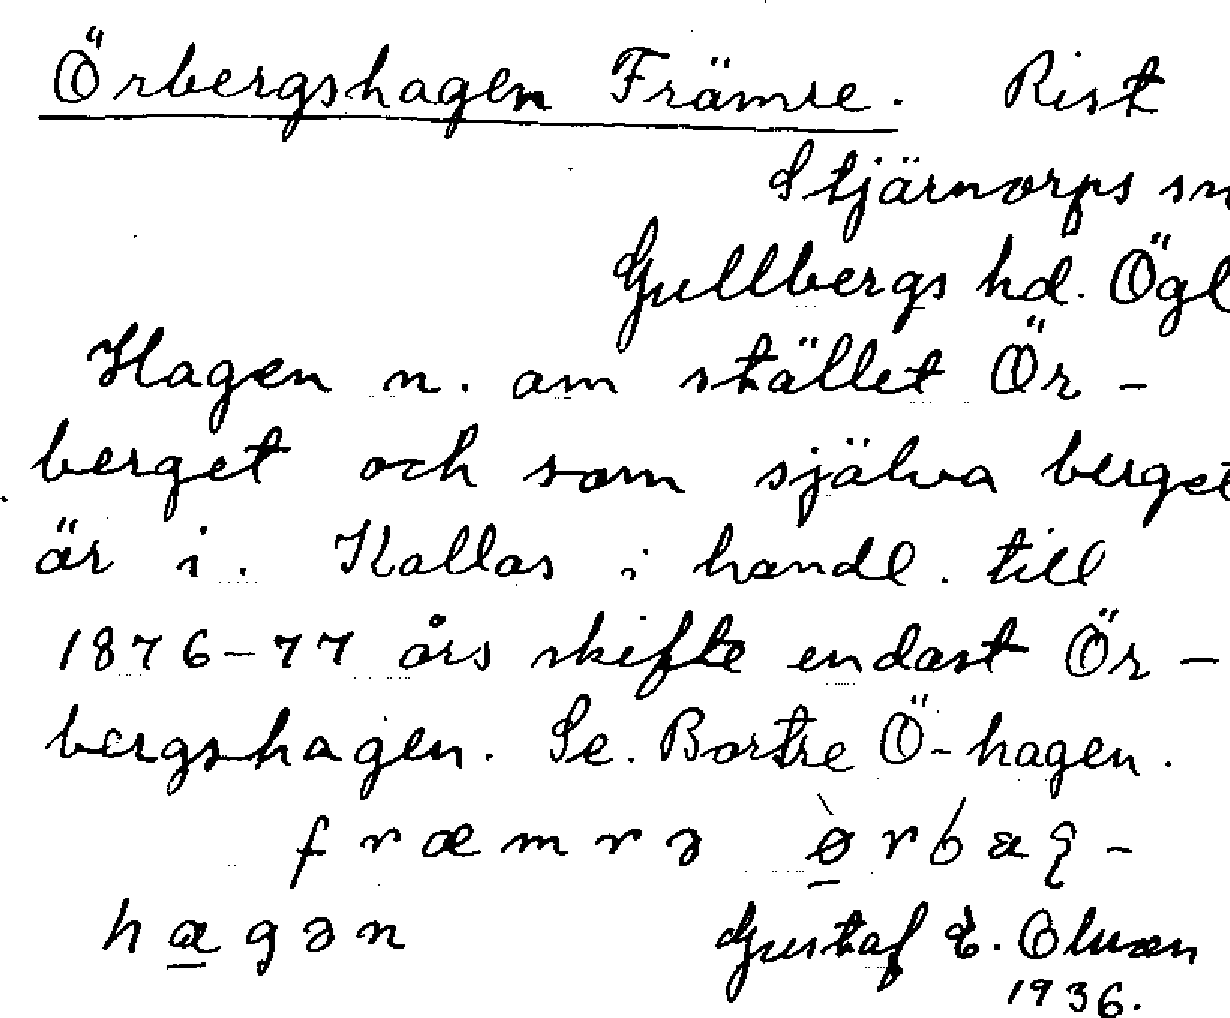 Örbergshagen Främre. Rist
Stjärnorps sn
Gullbergs hd. Ögl
Hagen n. om stället Ör-
berget och som själva berget
är i. Kallas i handl. till
1876-77 års skifte endast Ör-
bergshagen. Se. Bortre Ö-hagen.
fræmrə
hagən Gustaf E. Olsson
1936.